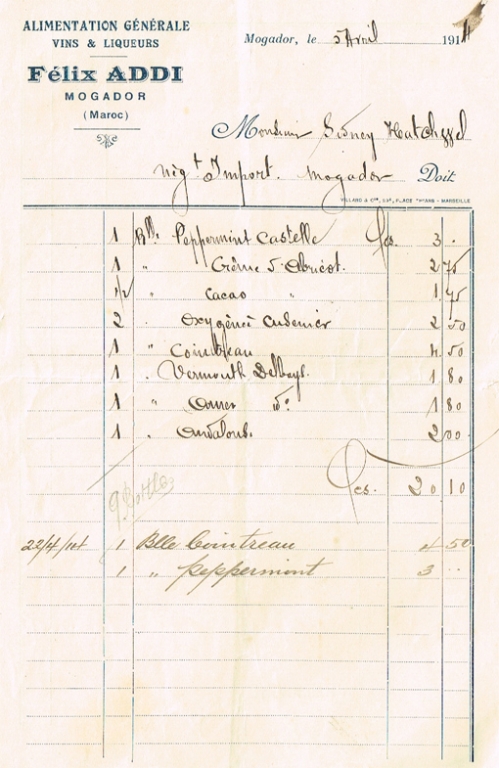 ALIMENTATION GÉNÉRALE
VINS & LIQUEURS
Félix ADDI
MOGADOR
(Maroc)
Mogador, le 5 Avril 1914
Monsieur Sidney Hatchzzel
Nég.t Import. Mogador Doit
MARSEILLE
1 Blle Peppermint Castelle fcs. 3 .
1 " Crème d'Abricot. 2 75
1/2 " Cacao " 1 75
2 . Oxygénée Cusenier 2 50
1 " Cointreau 4 50
1 . Vermouth Delbeys. 1 80
1 " Amer do 1 80
1 . Andalous. 2 00
fcs. 20 10
9 Bottles
22/4/14 1 Blle Cointreau 4 50
1 " Peppermont 3 ..